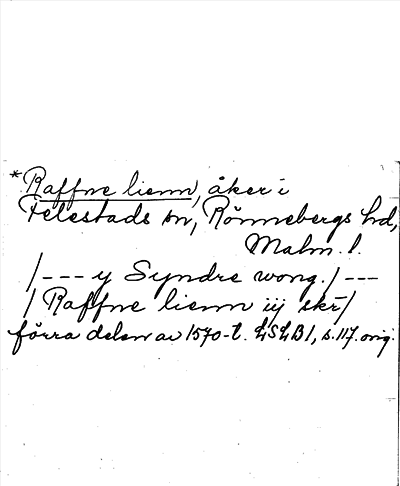 *Raffne lienn, åker i
Felestads sn, Rönnebergs hd,
Malm. l.
/--- y Syndre wong. / ---
/ Raffne lienn iij skr̄/
förra delen av 1570-t. LSLB1, s. 117. orig.